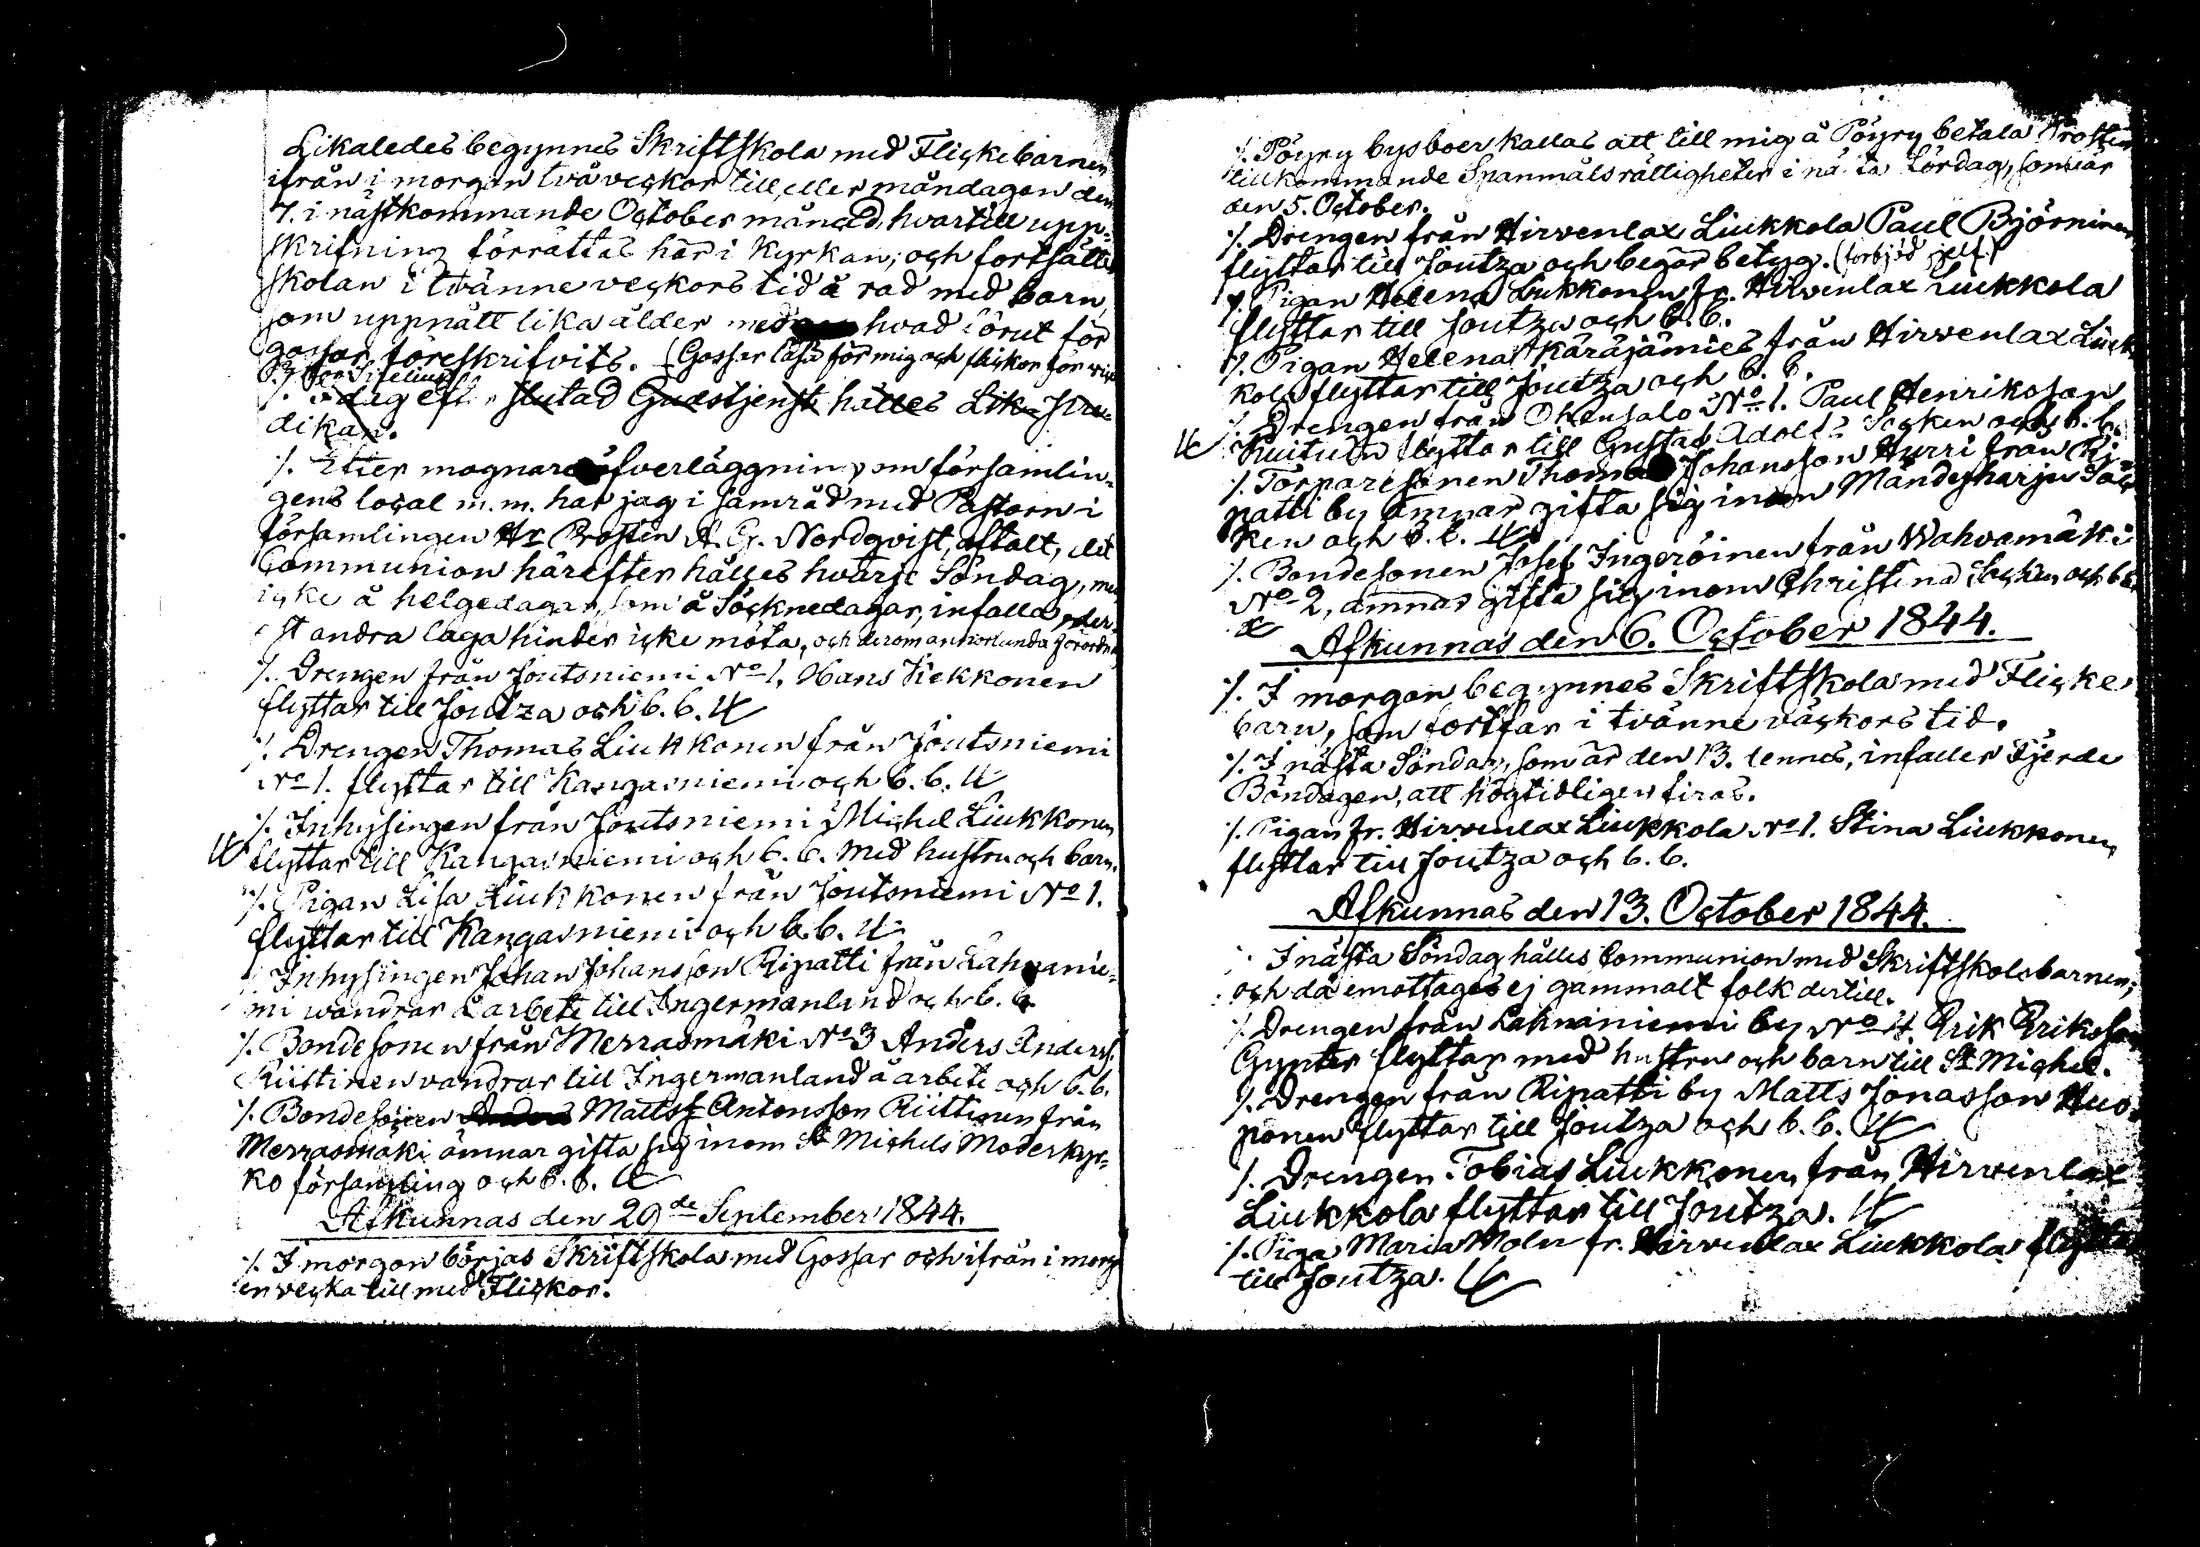 Likaledes begynnes Skriftskola med Flickebarnen
ifrån i morgon två veckor till, eller måndagen den
7. i nästkommande October månad, hvartill upp-
skrifning förrättas här i Kyrkan; och fortsättes
skolan i tvänne veckors tid å rad med barn,
som uppnått lika ålder med hvad förut för
gossar föreskrifvits. (Gossar läsa för mig och flickor för
I dag efter slutad Gudstjenst hålles Lik-
dikan.
./. Efter mognare öfverläggning om församlin-
gens local m. m. har jag i samråd med Pastorn i
församlingen Hr Prosten A. G. Nordqvist, aftalt, att
Communion härefter hålles hvarje Söndag, men
icke å helgedagar, som å Söcknedagar, infalla, der-
est andra laga hinder icke möta, och derom annorlunda förordnas
./. Drengen från Joutsniemi No 1, Hans Kekkonen
flyttar till Joutza och b. b.
./. Drengen Thomas Liukkonen från Joutsniemi
No 1. flyttar till Kangasniemi och b. b.
./. Inhysingen från Joutsniemi Michel Liukkonen
flyttar till Kangasniemi och b. b. med hustru och barn.
./. Pigan Lisa Liukkonen från Joutsniemi No 1.
flyttar till Kangasniemi och b. b.
./. Inhysingen Johan Johansson Ripatti från Lahnanie-
mi vandrar å arbete till Ingermanland och b. b.
./. Bondesonen från Merrasmäki No 3 Anders Anderss.
Riittinen vandrar till Ingermanland å arbete och b. b.
./. Bondesonen Matts Antonsson Riittinen från
Merrasmäki ämnar gifta sig inom St Michels Moderkyr-
ko församling och b. b.
Afkunnas den 29de September 1844.
./. I morgon börjas Skriftskola med Gossar och ifrån i morg
en vecka till med Flickor.
./. Pöyry bysboer kallas att till mig å Pöyry betala Prosten
tillkommande Spanmåls rättigheter i nästa Lördag, som är
den 5. October.
./. Drengen från Hirvenlax Liukkola Paul Björninen
flyttar till Joutza och begär betyg. (förbjöd sjelf.)
./. Pigan Helena Liukkonen fr. Hirvenlax Liukkola
flyttar till Joutza och b. b.
./. Pigan Helena Käräjämies från Hirvenlax Liuk-
kola flyttar till Joutza och b. b.
./. Drengen från Ohensalo No 1. Paul Henriksson
Kuitunen flyttar till Gustaf Adolfs Socken och b. b.
./. Torparesonen Thomas Johansson Hurri från Ri-
patti by ämnar gifta sig inom Mändyharju Soc-
ken och b. b.
./. Bondesonen Josef Ingeröinen från Wahvamäki
No 2, ämnar gifta sig inom Christina Socken och b b.
Afkunnas den 6. October 1844.
./. I morgon begynnes Skriftskola med Flicke-
barn, som fortfar i tvänne väckors tid.
./. I nästa Söndag, som är den 13. dennes, infaller Fjerde
Böndagen, att högtidligen firas.
./. Pigan fr. Hirvenlax Liukkola No 1. Stina Liukkonen
flyttar till Joutza och b. b.
Afkunnas den 13. October 1844.
./. I nästa Söndag hålles Communion med Skriftskolobarnen;
och då emottages ej gammalt folk dertill.
./. Drengen från Lahnaniemi by No 4. Erik Eriksson
Gynter flyttar med hustru och barn till St Michel.
./. Drengen från Ripatti by Matts Jonasson Huo-
ponen flyttar till Joutza och b. b.
./. Drengen Tobias Liukkonen från Hirvenlax
Liukkola flyttar till Joutza.
./. Piga Maria Moln fr. Hirvenlax Liukkola flyttar
till Joutza.